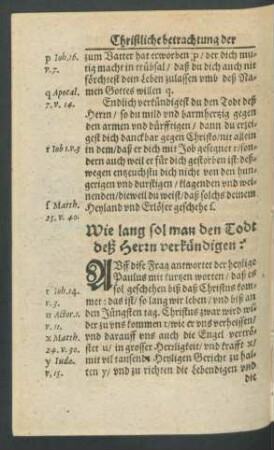 Christliche betrachtung der
p Ioh. 16.
v. 7.
q Apocal.
7. v. 14.
r Iob 1. v. 9
s Matth.
25. v. 40.
zum Vatter hat erworben p/ der dich mu-
tig macht in trübsal/ daß du dich auch nit
förchtest dein Leben zulassen vmb deß Na-
men Gottes willen q.
Endlich verkündigest du den Todt deß
Herrn/ so du mild vnd barmhertzig gegen
den armen vnd dürfftigen/ dann du erzei-
gest dich danckbar gegen Christo/ nit allein
in dem/ daß er dich mit Job gesegnet r/ son-
dern auch weil er für dich gestorben ist: deß-
wegen entzeuchstu dich nicht von den hun-
gerigen vnd durstigen/ klagenden vnd wei-
nenden/ dieweil du weist/ daß solchs deinem
Heyland vnd Erlöser geschehe s.
Wie lang sol man den Todt
deß Herrn verkündigen?
t Ioh. 14.
v. 3.
u Actor. 1.
v. 11.
x Matth.
24. v. 30.
y Iudæ.
v. 15.
AVff dise Frag antwortet der heylige
Paulus mit kurtzen worten/ daß es
sol geschehen biß daß Christus kom-
met: das ist/ so lang wir leben/ vnd biß an
den Jüngsten tag. Christus zwar wird wi-
der zu vns kommen t/ wie er vns verheissen/
vnd darauff vns auch die Engel vertrö-
ster u/ in grosser Herrligkeit/ vnd krafft x/
mit vil tausend Heyligen Gericht zu hal-
ten y/ vnd zu richten die Lebendigen vnd
die